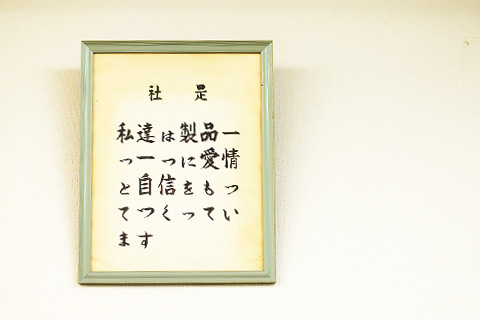 社是
私達は製品一
つ一つに愛情
と自信をもっ
てつくってい
ます